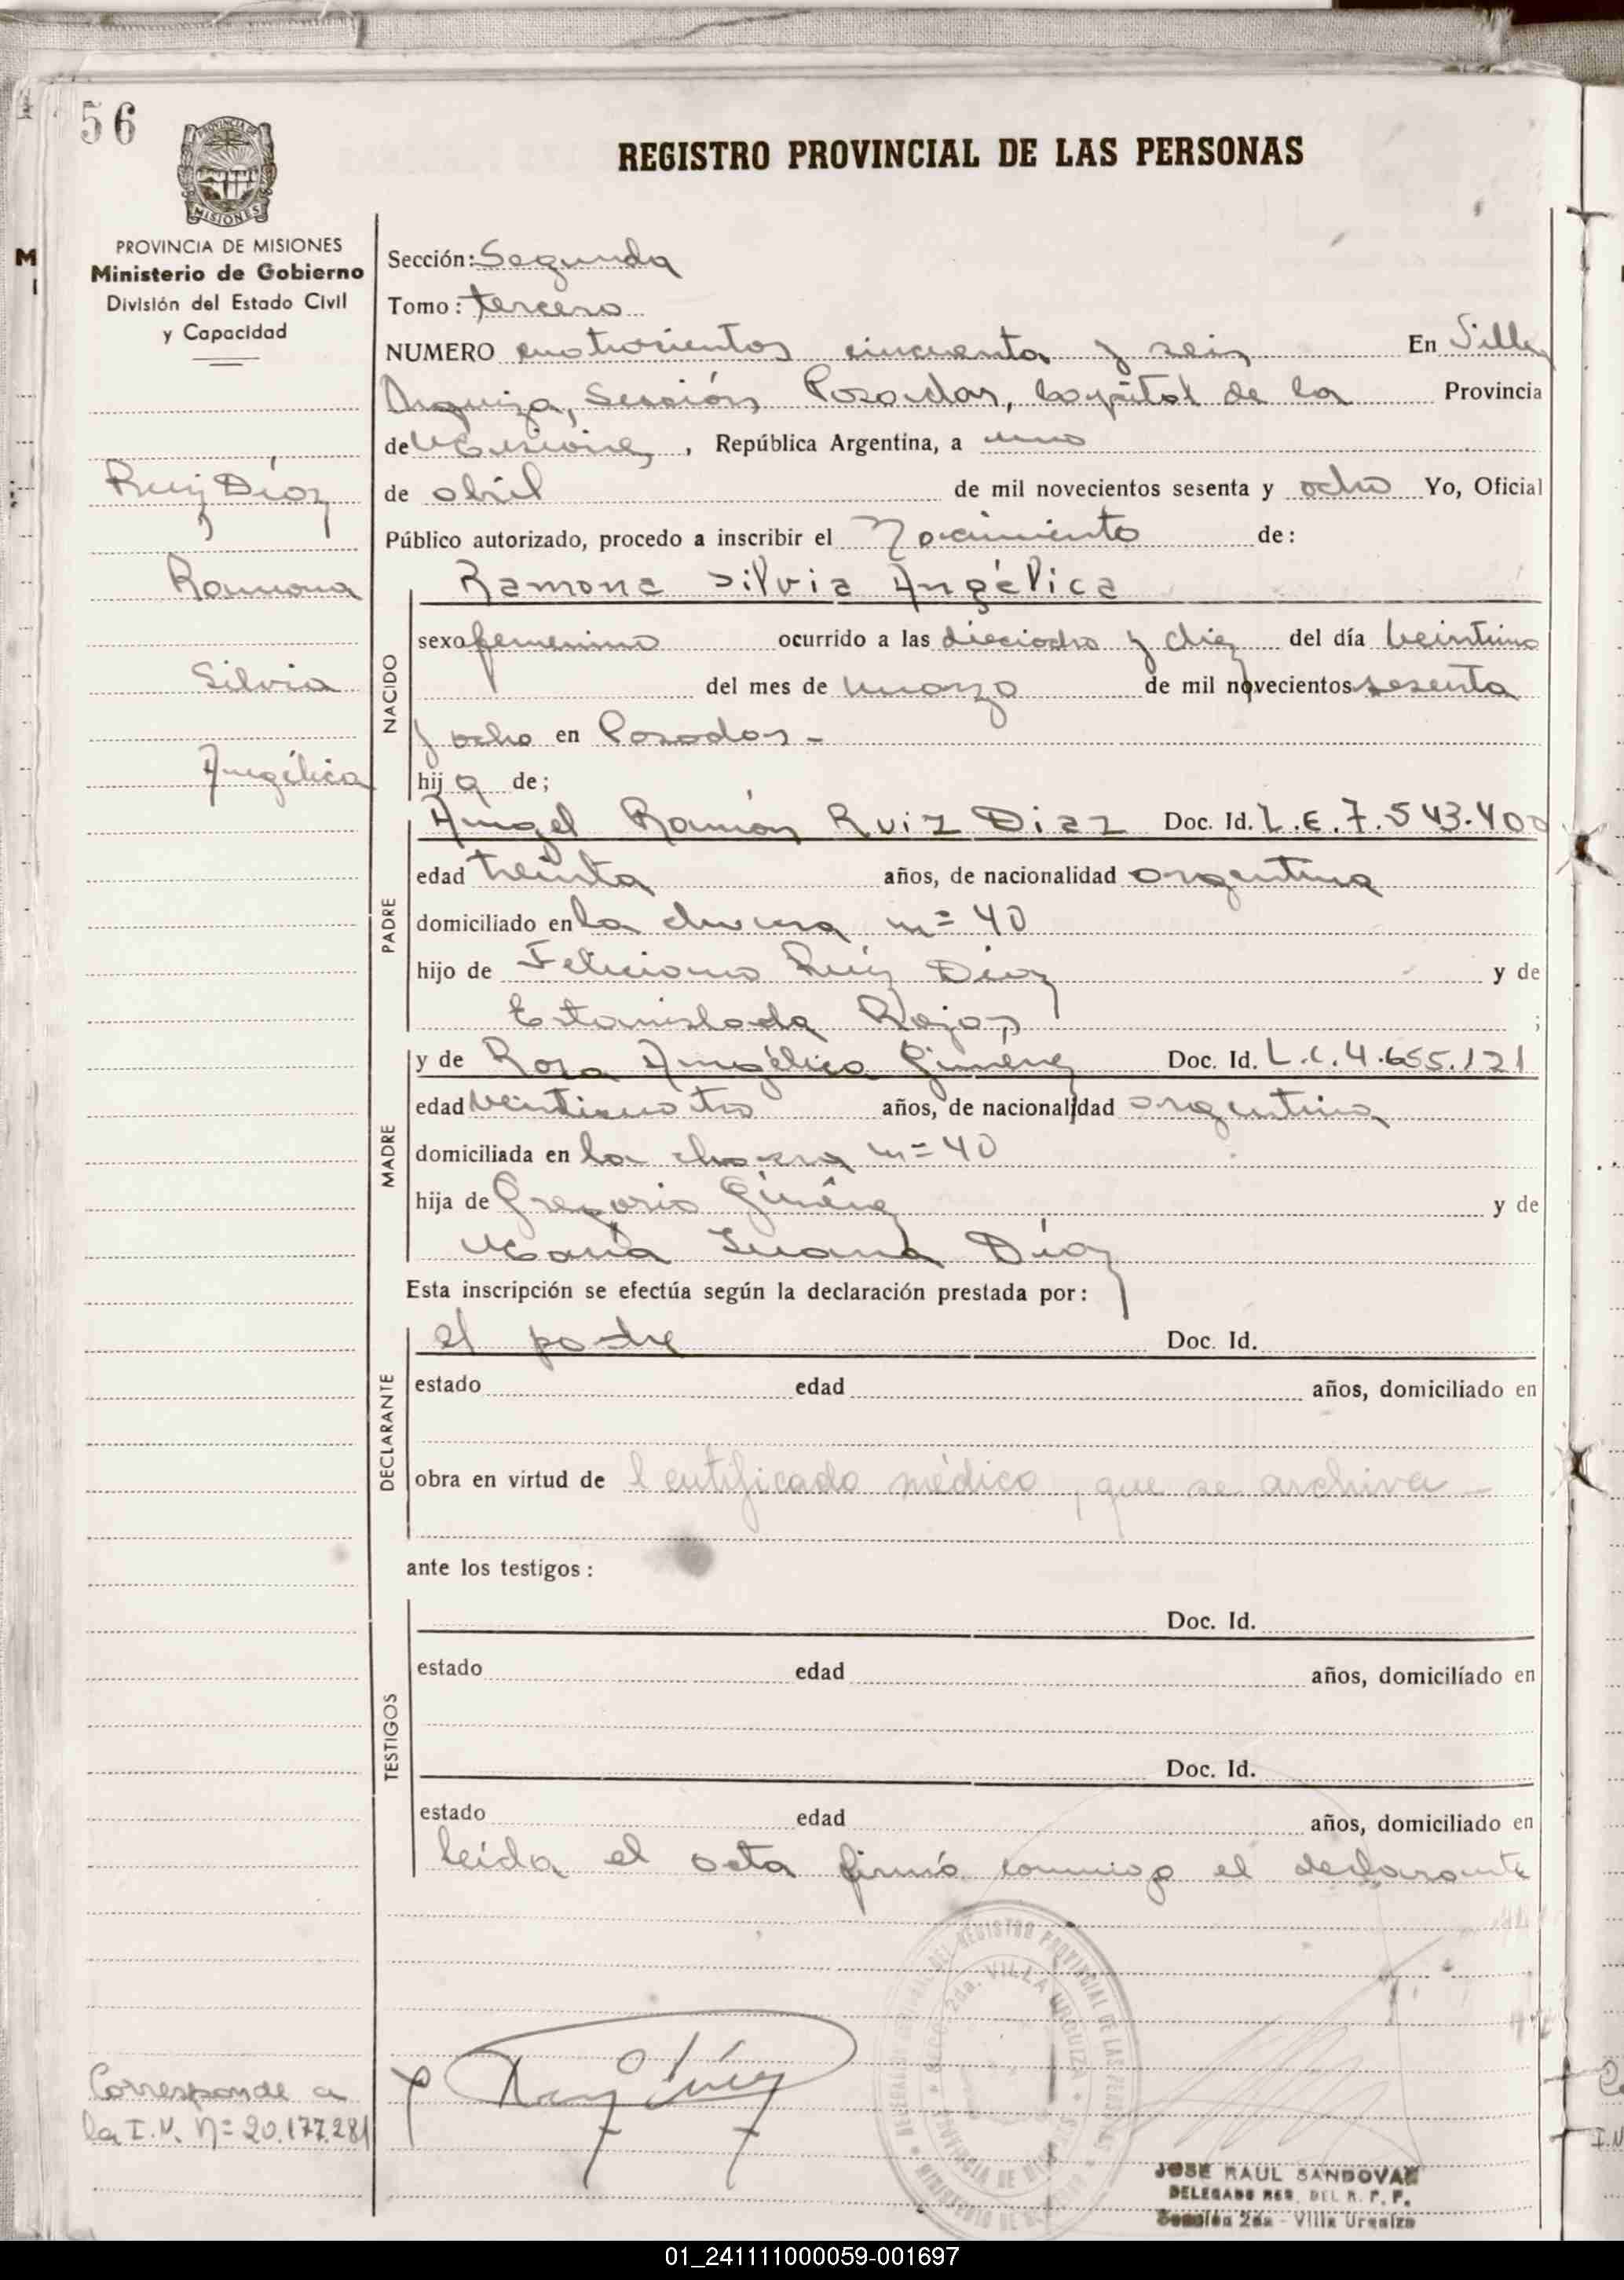 56
REGISTRO PROVINCIAL DE LAS PERSONAS
PROVINCIA DE MISIONES
MISIONES
PROVINCIA DE MISIONES
Ministerio de Gobierno
División del Estado Civil
y Capacidad
Ruiz Díaz
Ramona
Silvia
Angélica
Sección: Segunda
Tomo: tercero
NUMERO cuatrocientos cincuenta y seis En Villa
Urquiza, Sección Posadas, Capital de la Provincia
de Misiones, República Argentina, a uno
de abril de mil novecientos sesenta y ocho Yo, Oficial
Público autorizado, procedo a inscribir el Nacimiento de:
NACIDO
Ramona Silvia Angélica
sexo femenino ocurrido a las dieciocho y diez del día veintiuno
del mes de marzo de mil novecientos sesenta
y ocho en Posadas -
hija de;
PADRE
Angel Ramón Ruiz Diaz Doc. Id. L.E. 7.543.400
edad treinta años, de nacionalidad argentina
domiciliado en la chacra n= 40
hijo de Feliciano Ruiz Diaz y de
Estanislada Rojas ;
MADRE
y de Rosa Angélica Giménez Doc. Id. L.C. 4.655.121
edad veinticuatro años, de nacionalidad argentina
domiciliada en la chacra n= 40
hija de Gregorio Giménez y de
María Juana Díaz
Esta inscripción se efectúa según la declaración prestada por:
DECLARANTE
el padre Doc. Id.
estado edad años, domiciliado en
obra en virtud de Certificado médico, que se archiva -
ante los testigos:
TESTIGOS
Doc. Id.
estado edad años, domiciliado en
Doc. Id.
estado edad años, domiciliado en
leída el acta firmó conmigo el declarante
DEL REGISTRO PROVINCIAL DE LAS PERSONAS
SECC. 2da. VILLA URQUIZA
Corresponde a
la I.N. N= 20.177.281
JOSE RAUL SANDOVAL
DELEGADO REG. DEL R. P. P.
Sección 2da - Villa Urquiza
01_241111000059-001697